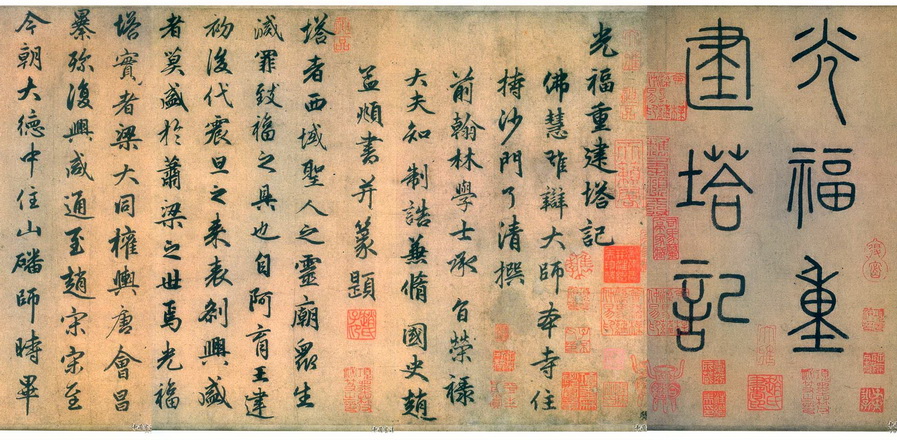 光福重
建塔記
光福重建塔記
佛慧雄辯大師本寺住
持沙門了清撰
前翰林學士承旨榮祿
大夫知制誥兼脩國史趙
孟頫書并篆題
塔者西域聖人之靈廟衆生
滅罪致福之具也自阿育王建
初後代震旦之来表剎興盛
者莫盛於蕭梁之世焉光福
塔實者梁大同權輿唐會昌
纍殄復興咸通至趙宋宋至
今朝大德中住山磻師時畢